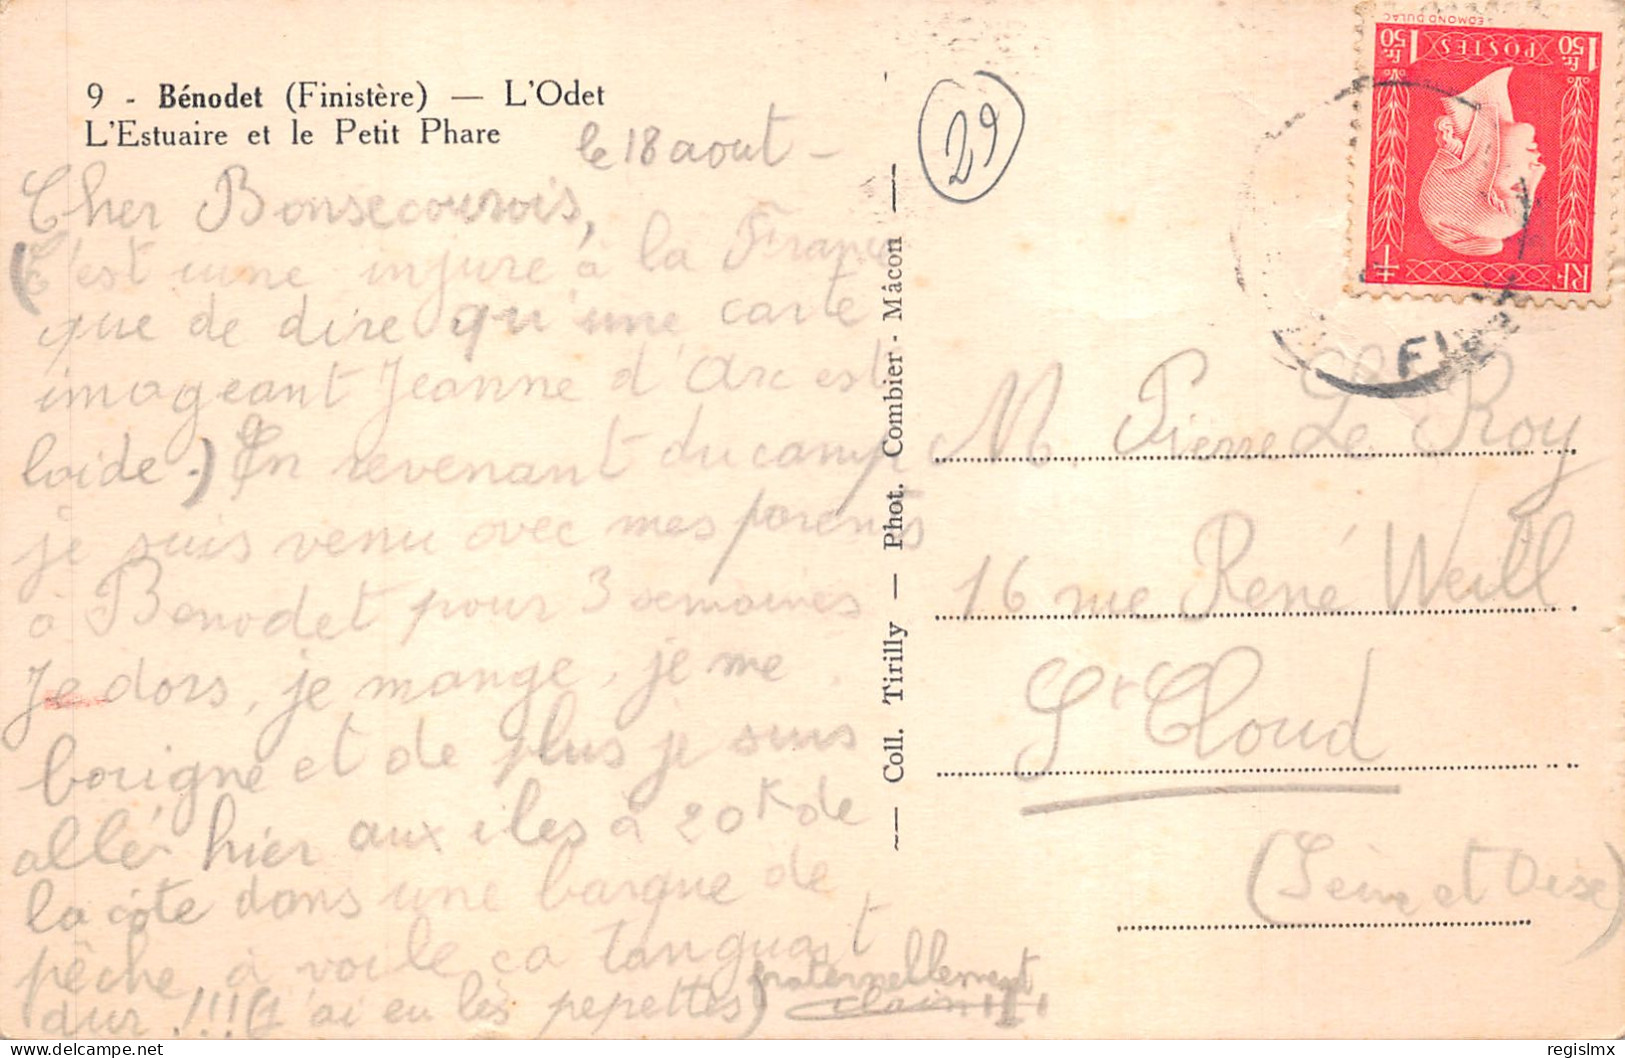 9 - Bénodet (Finistère) — L'Odet
L'Estuaire et le Petit Phare
le 18 aout -
Cher Bonsecoursois,
(C'est une injure à la France
que de dire qu'une carte
imageant Jeanne d'Arc est
laide.) En revenant du camp
je suis venu avec mes parents
à Benodet pour 3 semaines
Je dors, je mange, je me
baigne et de plus je suis
allé hier aux iles à 20K de
la côte dans une barque de
pêche à voile ça tanguait
dur !!! (J'ai eu les pepettes)
fraternellement
Coll. Tirilly — Phot. Combier - Mâcon
29
EDMOND DULAC
1 Fr. 50 POSTES 1 Fr. 50
RF
M. Pierre Le Roy
16 rue René Weill
St Cloud
(Seine et Oise)
regislmx